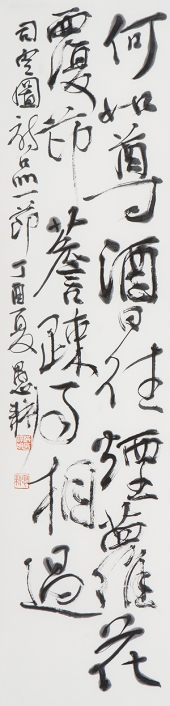 何如尊酒日往煙蘿花
覆茆詹疎雨相過
司空圖詩品一節丁酉夏愚耕